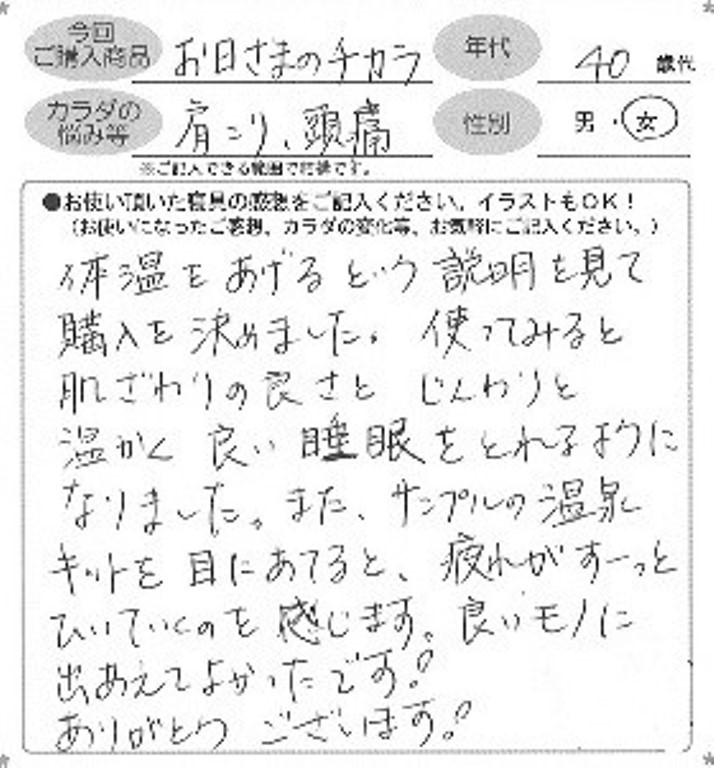 今回
ご購入商品
お日さまのチカラ
年代
40 歳代
カラダの
悩み等
肩こり、頭痛
性別
男・女
※ご記入できる範囲で結構です。
●お使い頂いた寝具の感想をご記入ください。イラストもOK！
（お使いになったご感想、カラダの変化等、お気軽にご記入ください。）
体温をあげるという説明を見て
購入を決めました。使ってみると
肌ざわりの良さとじんわりと
温かく良い睡眠をとれるように
なりました。また、サンプルの温泉
キットを目にあてると、疲れがすーっと
ひいていくのを感じます。良いモノに
出あえてよかったです!
ありがとうございます!